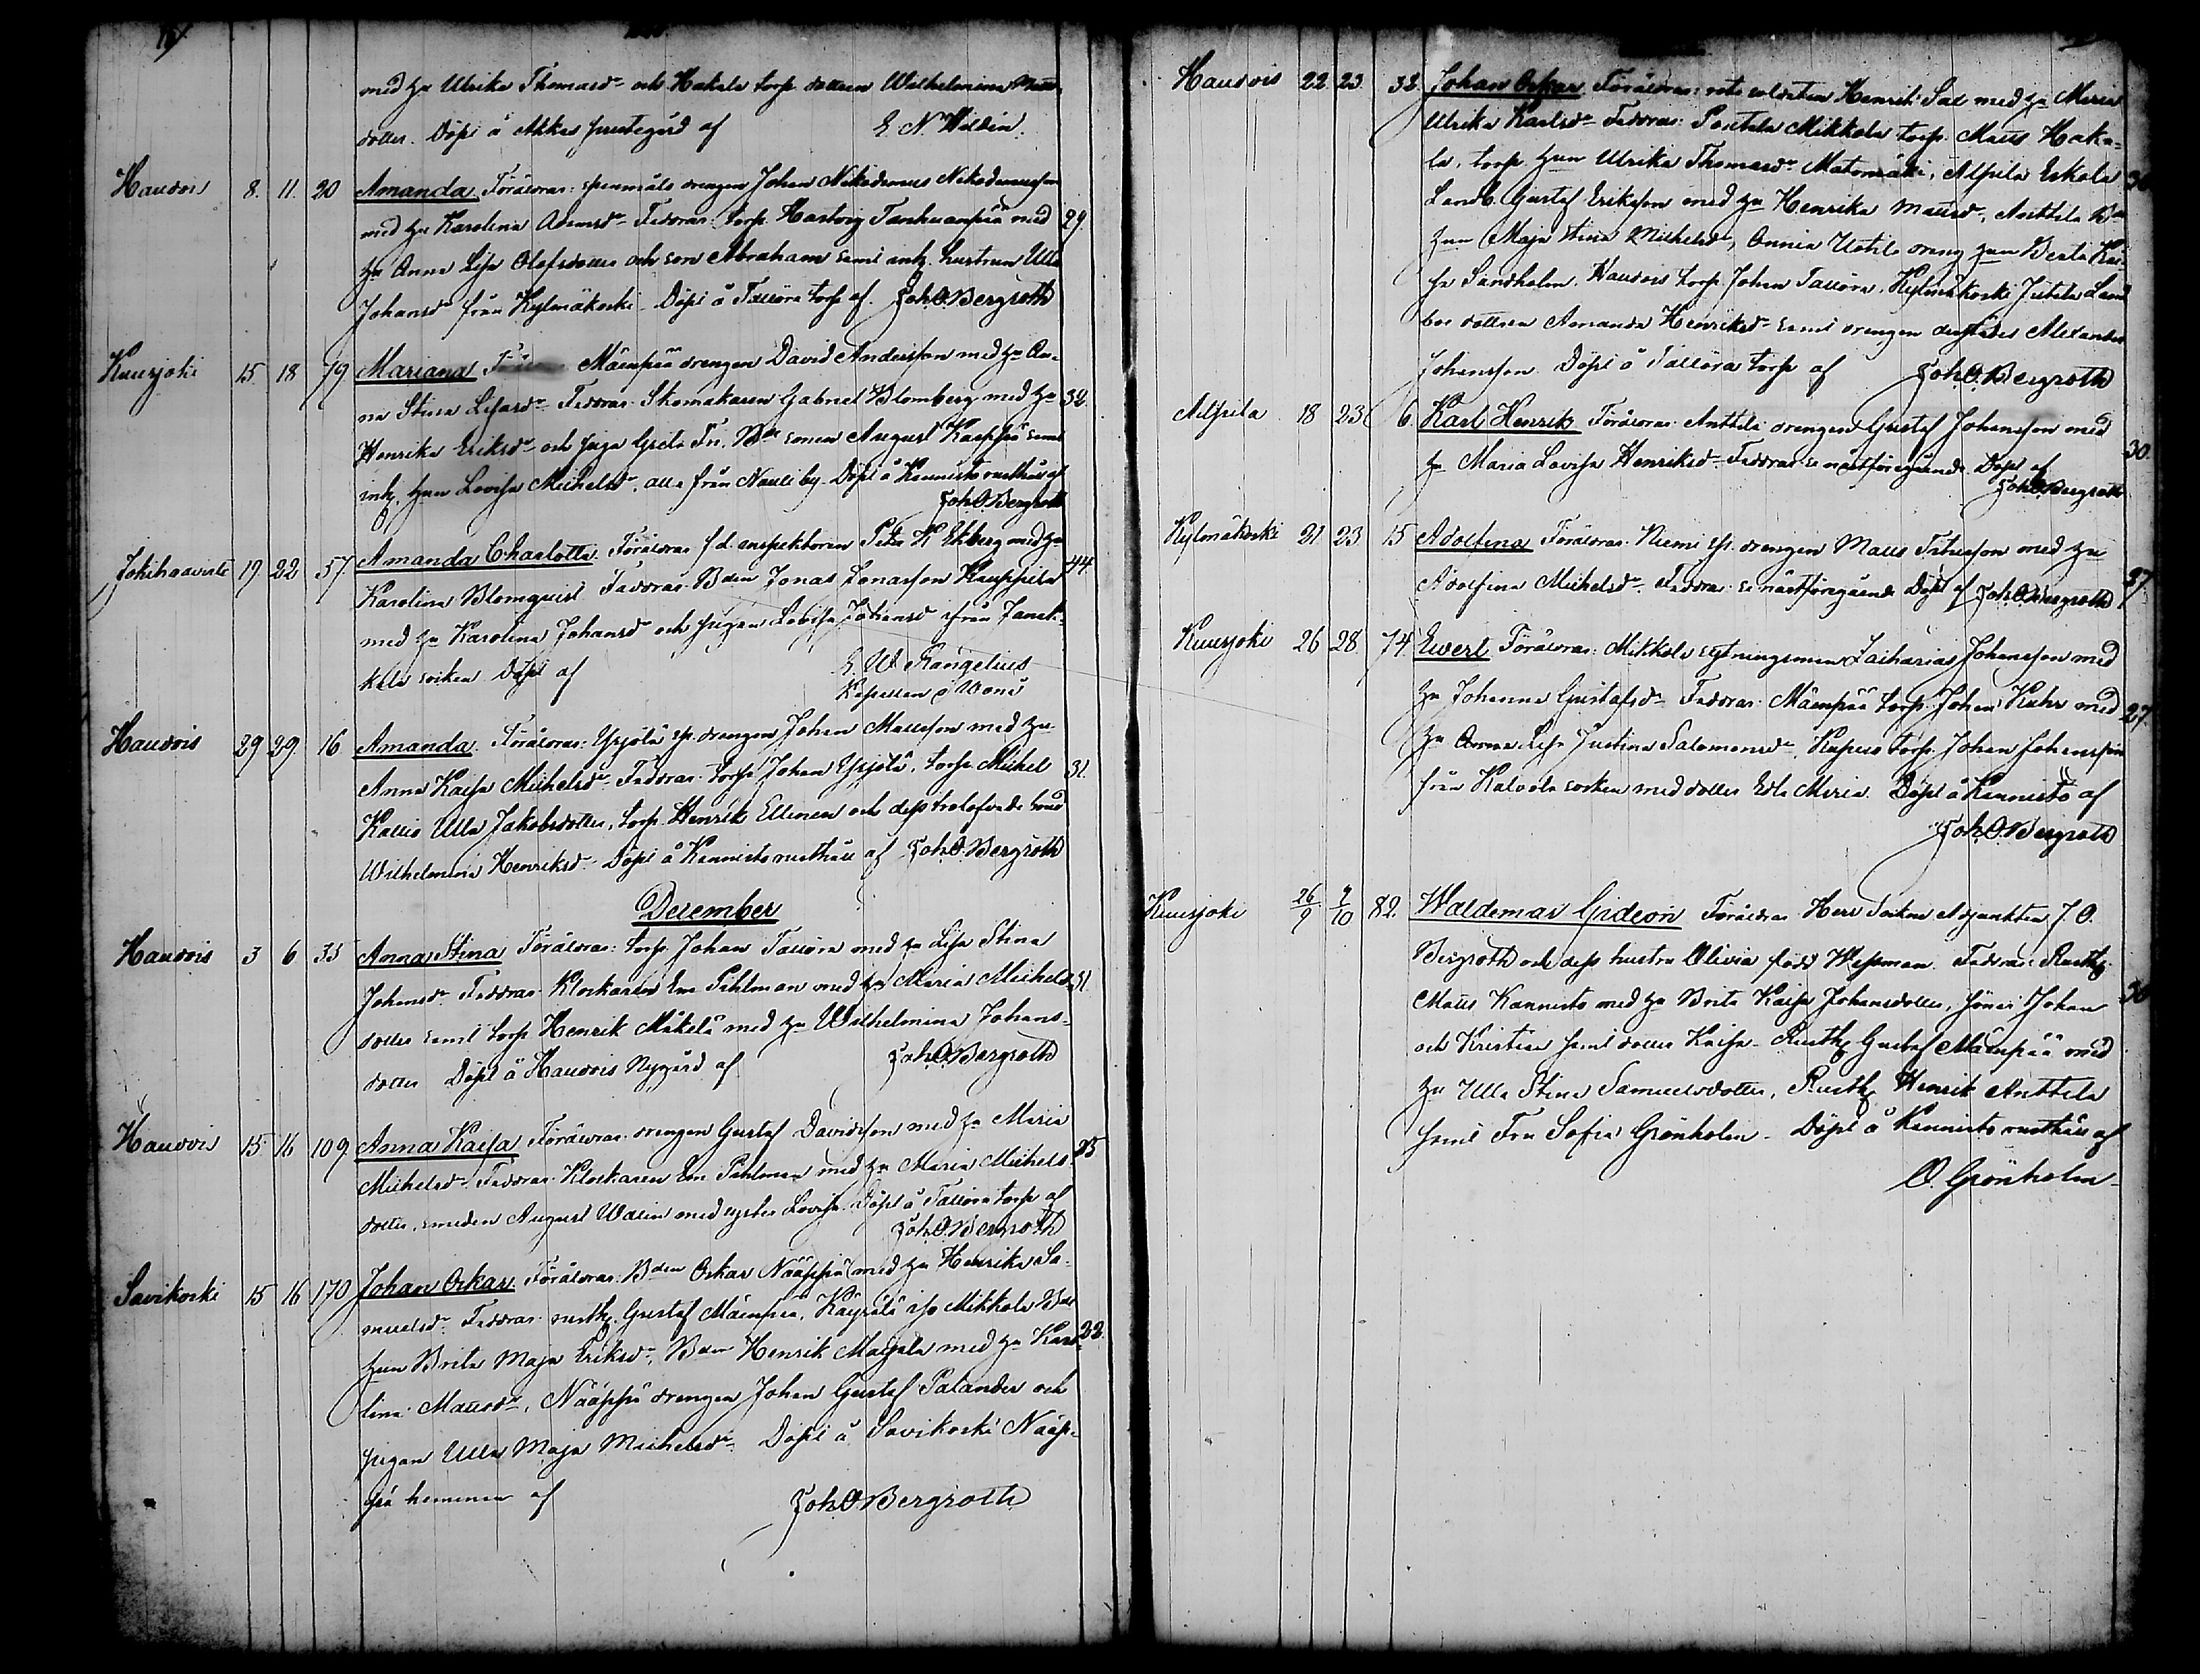 med hu Ulrika Thomasdr och Hakala torp. dottren Wilhelmina
dotter. Döpt å Akkas prestegård af E N Waldén.
Haudois 8. 11. 20 Amanda. Föräldrar: drengen Johan Nikodemus Nikodemusson
med hu Karolina Adamsdr Faddrar: torp. Hartvig Tanhuanpää med 29.
hu Anna Lisa Olofsdotter och son Abraham samt enk. hustrun Ulla
Johansdr från Kylmäkoski. Döpt å Tallöra torp af. Joh.O.Bergroth
Kuurjoki 15. 18 79 Mariana Mäenpää drengen David Andersson med hu An-
na Stina Lisasdr Faddrar: Skomakaren Gabriel Blomberg med hu 32.
Henrika Eriksdr och piga Greta sonen August samt
hun Lovisa Michelsdr, alla från Nauli by. Döpt å Kannisto rusthåll af
Joh.O.Bergroth
Jokihaavisto 19. 22 57. Amanda Charlotta. Föräldrar f.d. inspektoren Petter K Ekberg med hu
Karolina Blomquist Faddrar: Bden Jonas Jonasson Kauppila 44.
med hu Karolina Johansdr och pigan Lovisa Johansd ifrån Janak-
kala socken Döpt af G W Rangelius
Kapellan i Wånå
Haudois 29 29. 16 Amanda. Föräldrar: Yrjölä drengen Johan Mattsson med hu
Anna Kaisa Michelsdr Faddrar: torp. Johan Yrjölä, torp. Mickel 31.
Kallio Ulla Jakobsdotter, torp. Henrik Ellinen och dess trolofvade
Wilhelmina Henriksdr. Döpt å Kannisto rusthåll af Joh.O.Bergroth
December
Haudois 3 6 35 Anna Stina Föräldrar: torp. Johan Tallöra med hu Lisa Stina
Johansdr Faddrar: Klockaren Em Pihlman med hu Maria Michels- 31.
dotter samt torp. Henrik Mäkelä med hu Wilhelmina Johans-
dotter Döpt å Haudois Nygård af Joh.O.Bergroth
Haudois 15 16 109 Anna Kaisa Föräldrar: drengen Gustaf Davidsson med hu Maria
Michelsdr Faddrar: Klockaren Em Pihlman med hu Maria Michels- 25
dotter, smeden August Walin med syster Lovisa. Döpt å Tallöra torp af
Joh.O.Bergroth
Savikoski 15 16 170 Johan Oskar. Föräldrar: Bden Oskar Nääppä med hu Henrika Sa-
muelsdr Faddrar: rusth. Gustaf Mäenpää, Mikkola
hun Brita Maja Eriksdr, Bden Henrik med hu Karo- 22.
lina Mattsdr, Nääppä drengen Johan Gustaf Palander och
pigan Ulla Maja Michelsdr Döpt å Savikoski Nääp-
pä hemman af Joh.O.Bergroth
Haudois 22 23. 38 Johan Oskar Föräldrar: rote soldaten Henrik med hu Maria
Ulrika Karlsdr Faddrar: Mikkola torp. Matts Haka-
la, torp. hun Ulrika Thomasdr Matomäki, Alpila Eskola
Landb. Gustaf Eriksson med hu Henrika Mattsdr, Anttila
hun Maja Stina Michelsdr, Annia Uotila dreng hun Berta
Sandholm, Haudois torp. Johan Tallöra, Kylmäkoski Land-
bos dottren Amanda Henriksdr samt drengen Alexander
Johansson Döpt å Tallöra torp af Joh.O.Bergroth
Alpila 18 23 6. Karl Henrik Föräldrar: Anttila drengen Gustaf Johansson med
hu Maria Lovisa Henriksdr Faddrar: se nästföregående Döpt af 30.
Joh.O.Bergroth
Kylmäkoski 21 23 15 Adolfina Föräldrar: Niemi drengen Matts med hu
Adolfina Michelsdr. Faddrar: se nästföregående Döpt af Joh.O.Bergroth 37
Kuurjoki 26 28. 74 Evert Föräldrar: Mikkola Zacharias Johansson med
hu Johanna Gustafsdr Faddrar: Mäenpää torp. Johan med 27.
hu Anna Lisa Justina Salomonsdr, torp. Johan Johansson
från Kalvola socken med dotter Eda Maria. Döpt å Kannisto af
Joh.O.Bergroth
Kuurjoki 26/9 9/10 82. Waldemar Gideon Föräldrar Herr Socken Adjunkten J. O.
Bergroth och dess hustru Olivia född Faddrar: Rusth.
Matts Kannisto med hu Brita Kaisa Johansdotter, söner Johan
och Kristian samt dotter Kaisa. Rusth. Gustaf Mäenpää med
hu Ulla Stina Samuelsdotter, Rusth. Henrik Anttila
samt Fru Sofia Grönholm. Döpt å Kannisto rusthåll af
O. Grönholm